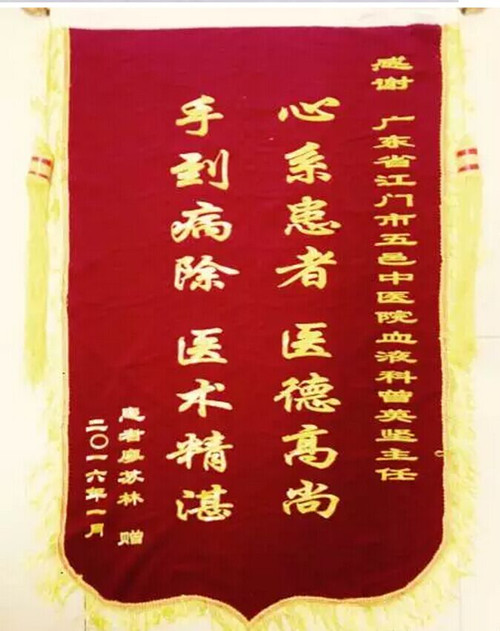 感谢 广东省江门市五邑中医院血液科曾英坚主任
心系患者 医德高尚
手到病除 医术精湛
患者廖苏林 赠
二〇一六年一月